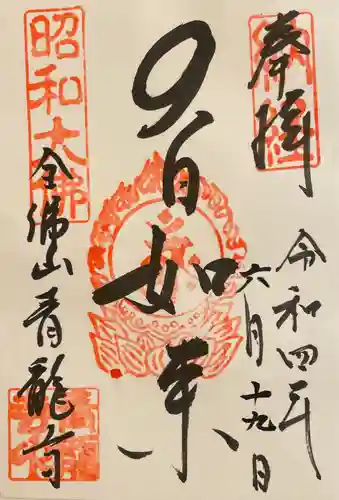 奉拝
納経
令和四年
六月十九日
大日如来
昭和大佛
全佛山青龍寺